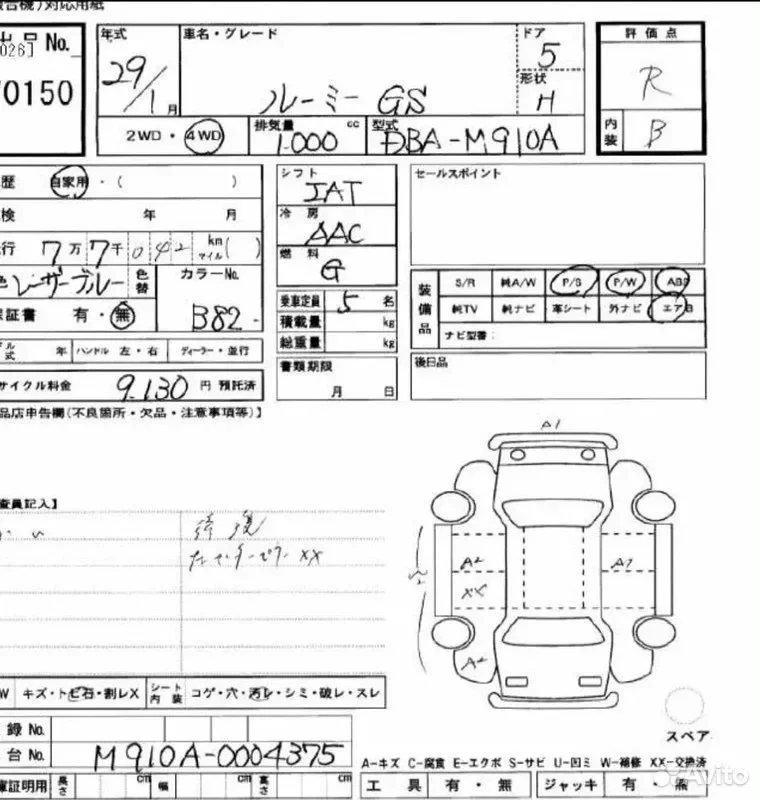 報告機)対応用紙
出品No.
026]
70150
年式
29/1月
車名・グレード
ルーミー GS
ドア
5
形状
H
評価点
R
内装
B
2WD・4WD
排気量
1.000 cc
型式
DBA-M910A
歴 自家用・( )
検 年 月
行 7万7千042 km マイル( )
色 レーザーブルー 色替
カラーNo.
B82
保証書 有・無
シフト
IAT
冷房
AAC
燃料
G
乗車定員 5 名
積載量 kg
総重量 kg
書類期限
月 日
セールスポイント
装備品
S/R 純A/W P/S P/W ABS
純TV 純ナビ 革シート 外ナビ エアB
ナビ型番:
後日品
モデル年式 年 ハンドル 左・右 ディーラー・並行
リサイクル料金 9.130 円 預託済
出品店申告欄(不良箇所・欠品・注意事項等)】
検査員記入】
修復
XX
A1
A2
A1
XX
A2
W キズ・トビ石・割レX
シート内装 コゲ・穴・汚レ・シミ・破レ・スレ
録No.
台No. M910A-0004375
車庫証明用 長さ cm 幅 cm 高さ cm
スペア
A-キズ C-腐食 E-エクボ S-サビ U-凹ミ W-補修 XX-交換済
工具 有・無 ジャッキ 有・無
Avito